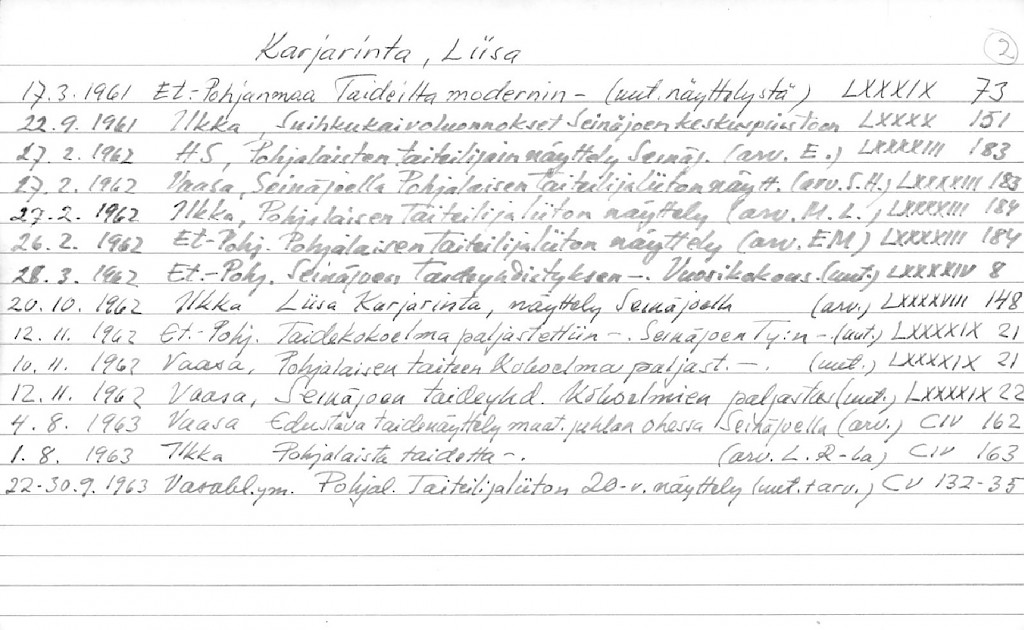 Karjarinta, Liisa 2
17.3.1961 Et.-Pohjanmaa Taideilta modernin - (uut. näyttelystä) LXXXIX 73
22.9.1961 Ilkka, Suihkukaivoluonnokset Seinäjoen keskuspuistoon LXXXX 151
27.2.1962 HS, Pohjalaisten taiteilijain näyttely Seinäj. (arv. E.) LXXXXIII 183
27.2.1962 Vaasa, Seinäjoella Pohjalaisen Taiteilijaliiton näytt. (arv. S.H.) LXXXXIII 183
27.2.1962 Ilkka, Pohjalaisen Taiteilijaliiton näyttely (arv. M.L.) LXXXXIII 184
26.2.1962 Et-Pohj. Pohjalaisen Taiteilijaliiton näyttely (arv. EM) LXXXXIII 184
28.3.1962 Et.-Pohj. Seinäjoen Taideyhdistyksen -. Vuosikokous. (uut.) LXXXXIV 8
20.10.1962 Ilkka Liisa Karjarinta, näyttely Seinäjoella (arv.) LXXXXVIII 148
12.11.1962 Et.-Pohj. Taidekokoelma paljastettiin -. Seinäjoen Ty:n - (uut.) LXXXXIX 21
10.11.1962 Vaasa, Pohjalaisen taiteen Kokoelma paljast. -. (uut.) LXXXXIX 21
12.11.1962 Vaasa, Seinäjoen taideyhd. Kokoelmien paljastus (uut.) LXXXXIX 22
4.8.1963 Vaasa Edustava taidenäyttely maat. juhlan ohessa Seinäjoella (arv.) CIV 162
1.8.1963 Ilkka Pohjalaista taidetta -. (arv. L. R-la) CIV 163
22-30.9.1963 Vasabl. ym. Pohjal. Taiteilijaliiton 20-v. näyttely (uut. + arv.) CV 132-35